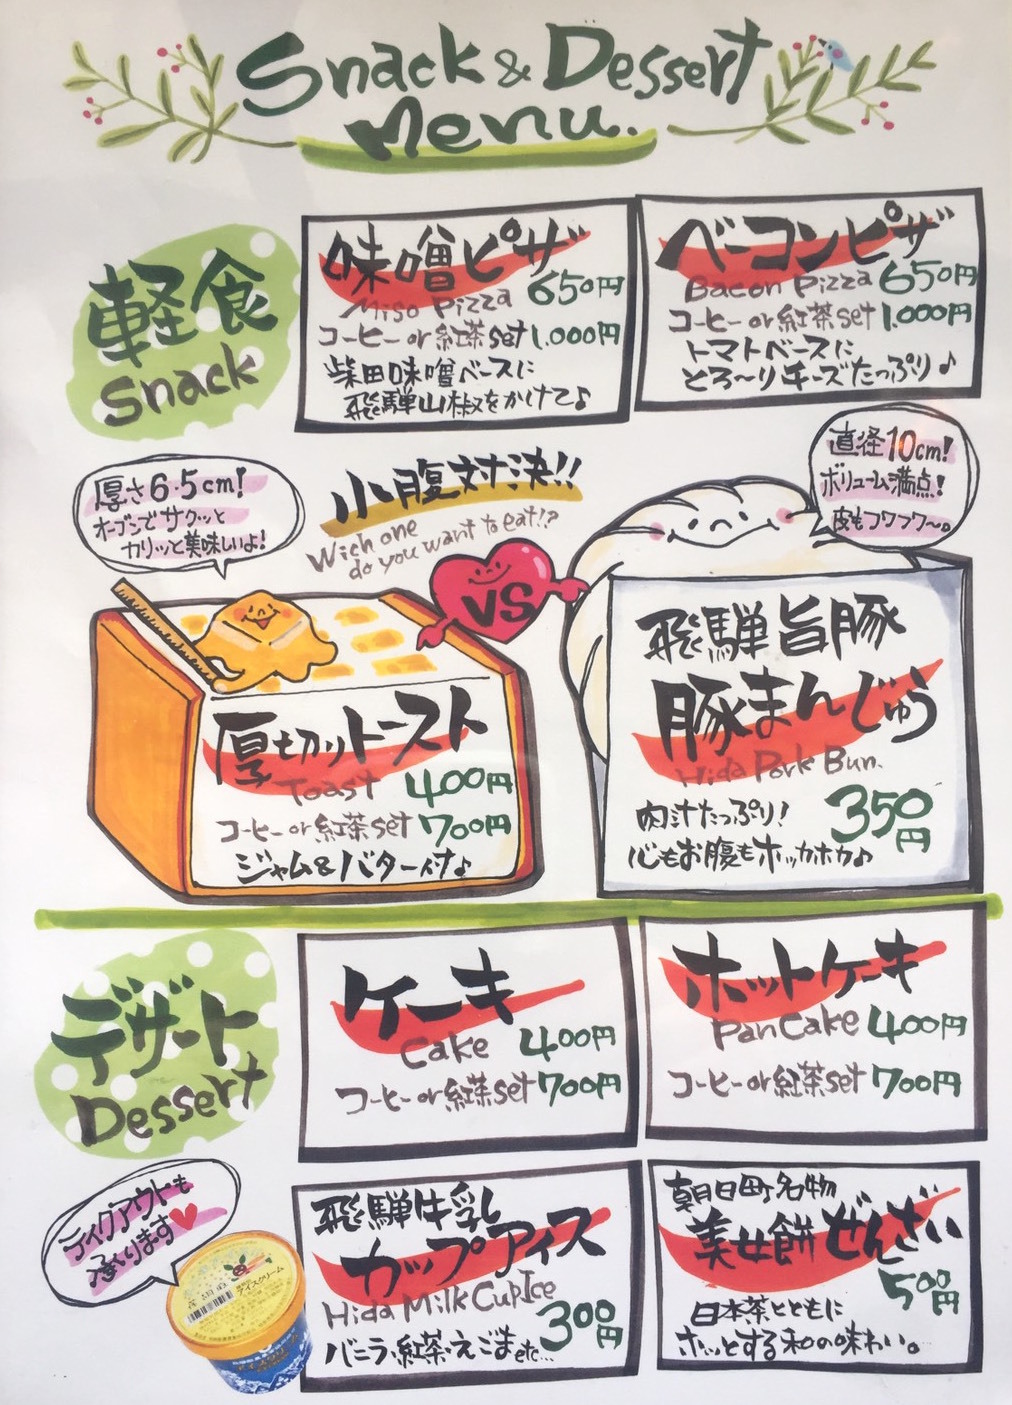 Snack & Dessert
menu.
軽食
Snack
味噌ピザ
Miso Pizza 650円
コーヒー or 紅茶 set 1,000円
柴田味噌ベースに
飛騨山椒をかけて♪
ベーコンピザ
Bacon Pizza 650円
コーヒー or 紅茶 set 1,000円
トマトベースに
とろ〜りチーズたっぷり♪
厚さ6.5cm!
オーブンでサクッと
カリッと美味しいよ!
小腹対決!!
Wich one
do you want to eat!?
VS
直径10cm!
ボリューム満点!
皮もフワフワ〜。
厚切りトースト
Toast 400円
コーヒー or 紅茶 set 700円
ジャム&バター付♪
飛騨旨豚
豚まんじゅう
Hida Pork Bun.
肉汁たっぷり! 350円
心もお腹もホッカホカ♪
デザート
Dessert
ケーキ
Cake 400円
コーヒー or 紅茶 set 700円
ホットケーキ
Pan Cake 400円
コーヒー or 紅茶 set 700円
テイクアウトも
承ります♥
アイスクリーム
飛騨牛乳
カップアイス
Hida Milk Cup Ice
バニラ、紅茶、えごま etc... 300円
朝日町名物
美女餅ぜんざい
500円
日本茶とともに
ホッとする和の味わい。